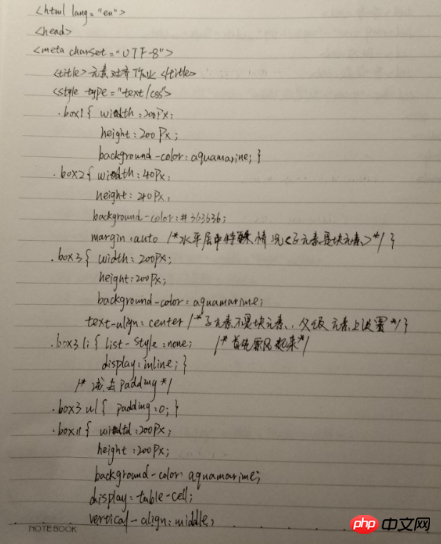 <html lang="en">
<head>
<meta charset="UTF-8">
<title>元素对齐作业</title>
<style type="text/css">
.box1{ width:200px;
height:200px;
background-color:aquamarine;}
.box2{ width:40px;
height:240px;
background-color:#363636;
margin:auto /*水平居中特殊情况<子元素是块元素>*/}
.box3{ width:200px;
height:200px;
background-color:aquamarine;
text-align:center /*子元素不是块元素,父级元素上设置*/}
.box3 li{ list-style:none; /*首先浮动起来*/
display:inline; }
/*padding*/
.box3 ul{ padding:0; }
.box11{ width:200px;
height:200px;
background-color:aquamarine;
display:table-cell;
vertical-align:middle;
NOTEBOOK
php中文网